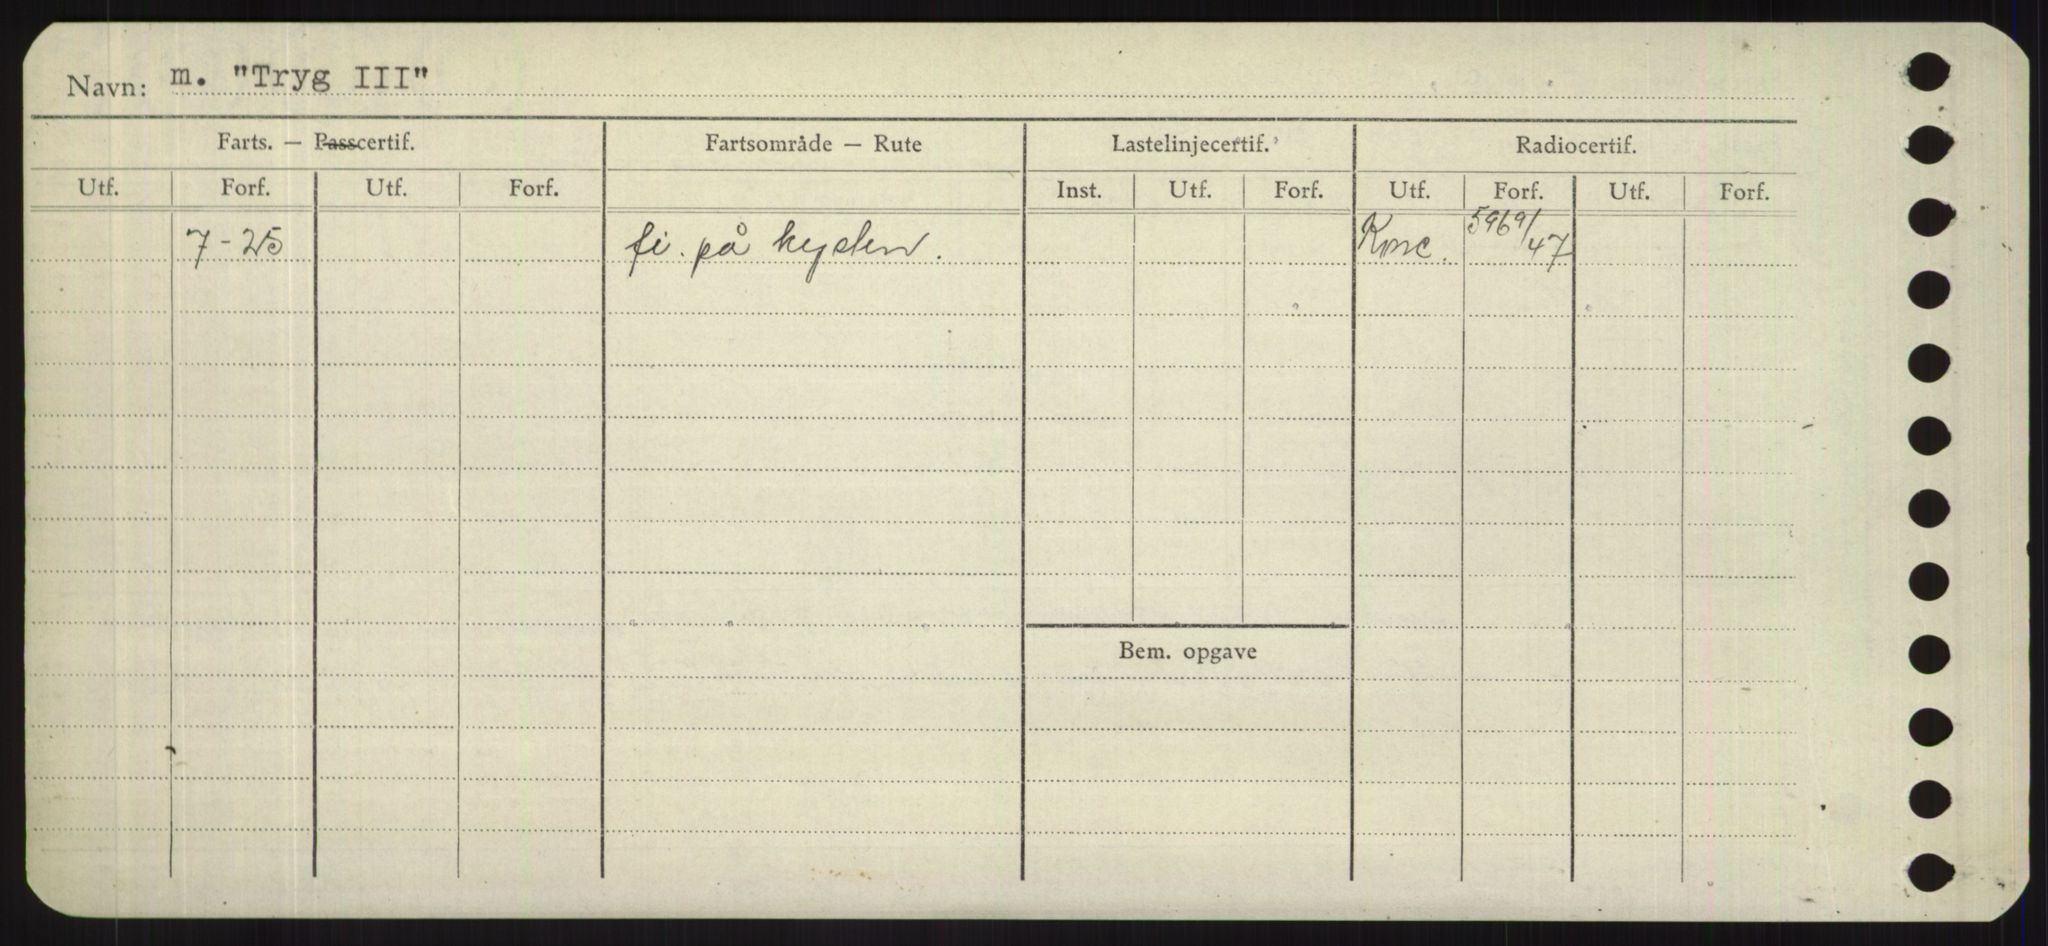 Navn: m. "Tryg III"
Farts. — Passcertif. Fartsområde — Rute Lastelinjecertif. Radiocertif.
Utf. Forf. Utf. Forf. Inst. Utf. Forf. Utf. Forf. Utf. Forf.
7-25 fi. på kysten. Konc. 5969/47
Bem. opgave